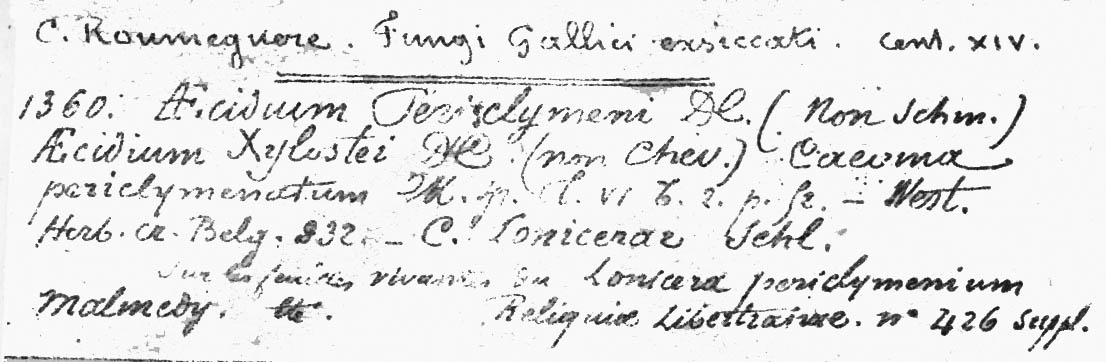 C. Roumeguere. Fungi Gallici exsiccati. Cent. XIV.
1360. Æcidium Periclymeni DC. (Non Schm.)
Æcidium Xylostei (non Chev.) Caeoma
periclymenatum p. VI p. – West.
Herb. cr. Belg. 232. – C. Lonicerae Schl.
Sur les feuilles vivantes du Lonicera periclymenium
Malmedy. Reliquiæ Libertianae. n° 426 Suppl.